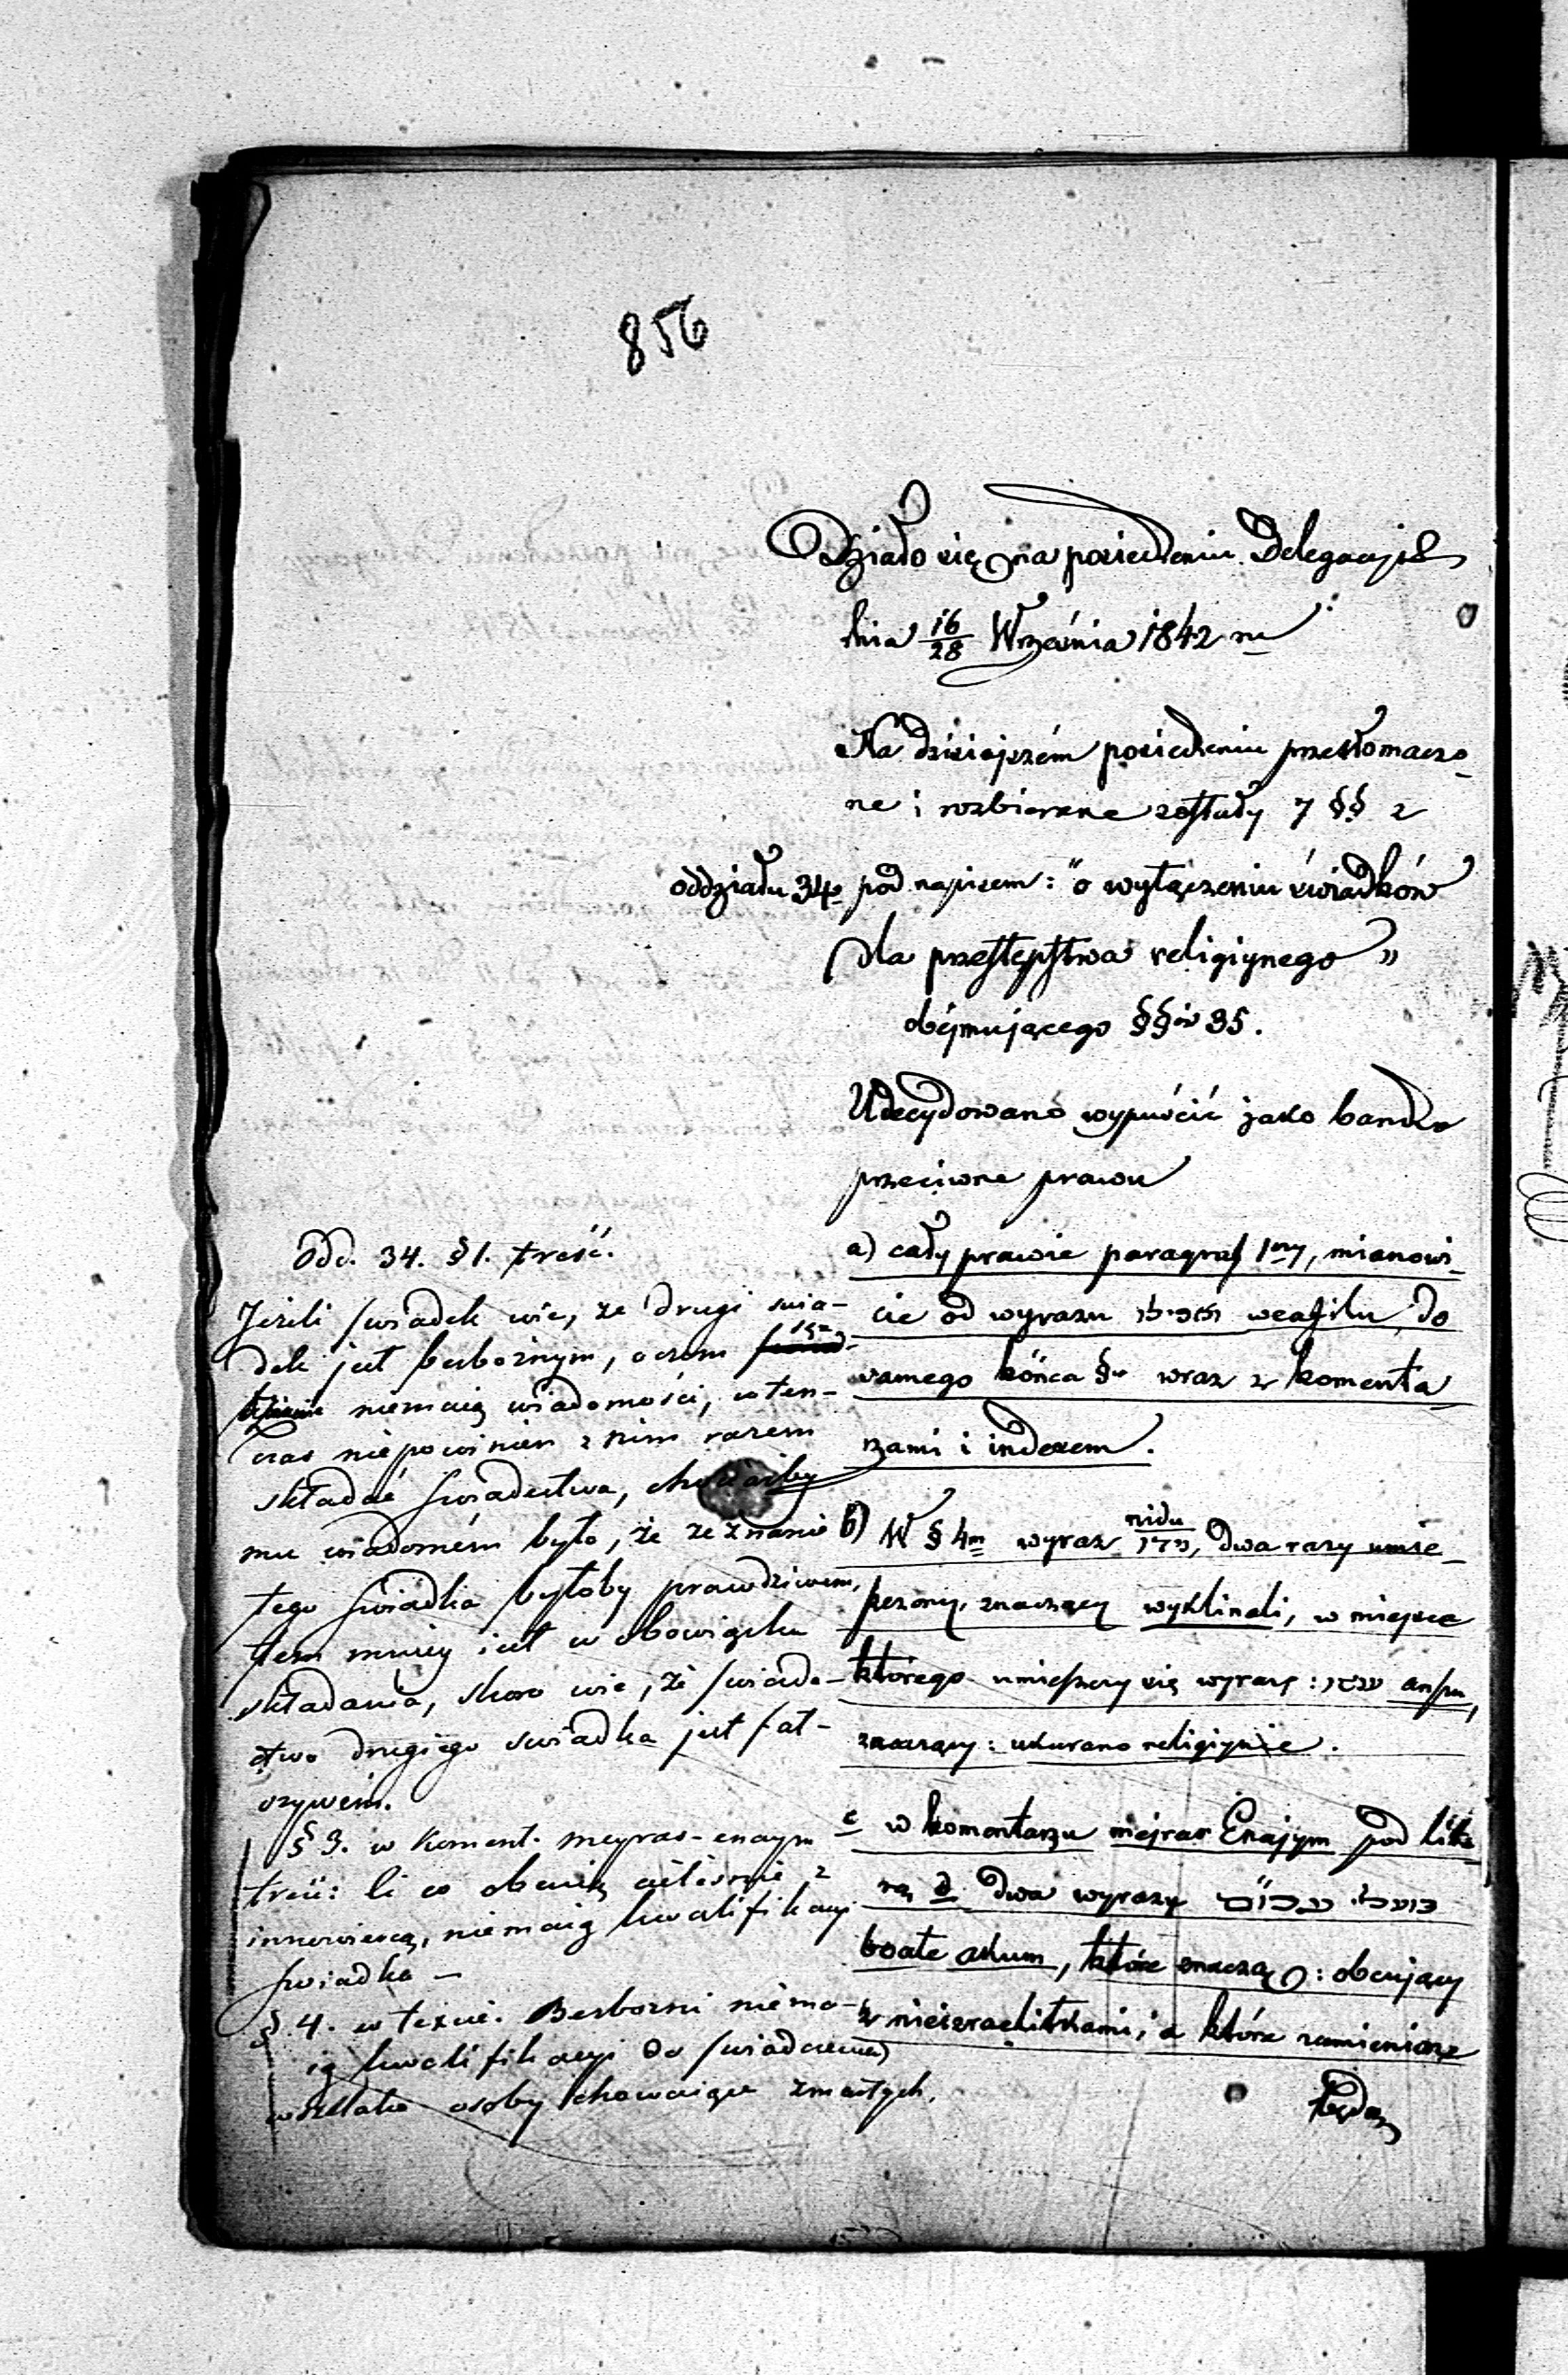 856
Działo się na posiedzeniu Delegacji
dnia 16/28 Września 1842 r.
Na dzisiejszém posiedzeniu przetłomaczo-
ne i rozbierane zostały 7 §§ z
oddziału 34o pod napisem: "o wyłączeniu świadków
dla przestępstwa religijnego"
obejmującego §§ów 35.
Udecydowano wypuścić jako bardzo
przeciwne prawu
a) cały prawie paragraf 1szy, mianowi-
cie od wyrazu ואפילו weafilu, do
samego końca §u wraz z komenta
rzami i indexem.
b) W § 4m wyraz nidu נידו, dwa razy umie-
szczony, znaczący wyklinali, w miejsce
którego umieszczy się wyraz: ענשו anszu,
znaczący: ukarano religijnie.
c w komentarzu mejras Enajym pod lite
rą d dwa wyrazy בועלי עכו״ם
boale akum, które znaczą: obcujący
z nieizraelitkami, a które zamienione
będą
Odd. 34. §1. treść.
Jeżeli świadek wie, że drugi świa-
dek jest bezbożnym, o czem
niemaią wiadomości, wten-
czas niepowinien z nim razem
składać świadectwa, chociażby
mu wiadomém było, że zeznanie
tego świadka byłoby prawdziwem,
tem mniey iest w obowiązku
składania, skoro wie, że świade-
ctwo drugiego świadka jest fał-
szywém.
§ 3. w Koment. meyras-enaym
treść: li co obcuią cieleśnie z
innowiercą, niemaią kwalifikacyi
świadka –
§. 4. w texcie. Bezbożni niema-
ią kwalifikacyi do świadczenia
wszelako osoby chowaiące zmarłych,